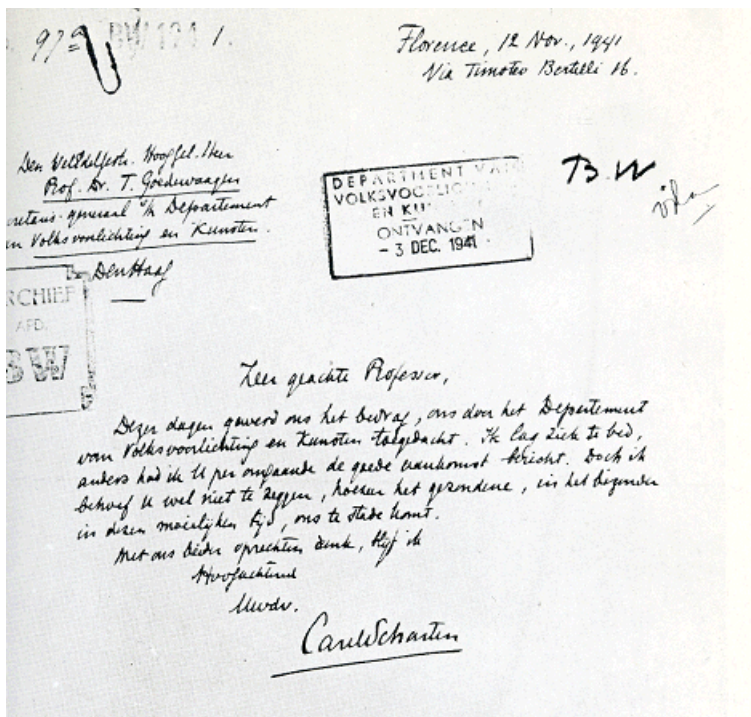 97a BW 121 1.
Florence, 12 Nov., 1941
Via Timoteo Bertelli 16.
Den WelEdelgestr. Hooggel. Heer
Prof. Dr. T. Goedewaagen
cretaris-generaal v/h Departement
an Volksvoorlichting en Kunsten.
Den Haag
DEPARTMENT VAN
VOLKSVOORLICHTING
EN KU
ONTVANGEN
- 3 DEC. 1941
B.W
RCHIEF
AFD.
BW
Zeer geachte Professor,
Dezer dagen gewerd ons het bedrag, ons door het Departement
van Volksvoorlichting en Kunsten toegedacht. Ik lag ziek te bed,
anders had ik U per omgaande de goede aankomst bericht. Doch ik
behoef U wel niet te zeggen, hoezeer het gezondene, in het bizonder
in dezen moeilijken tijd, ons te stade komt.
Met ons beider oprechten dank, blijf ik
Hoogachtend
Uwdv.
Carel Scharten